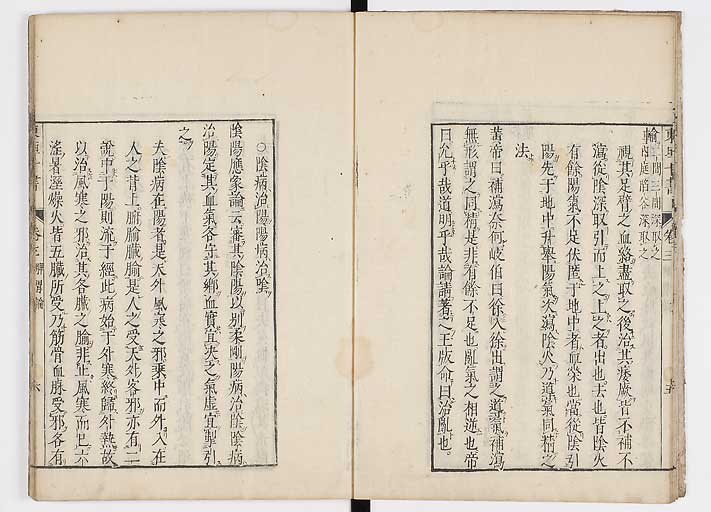 輸
視其足臂之血絡盡取之後治其痿厥皆不補不
瀉從陰深取引而上之上之者出也去也皆陰火
有餘陽氣不足伏匿于地中者血榮也當從陰引
陽先于地中升舉陽氣次瀉陰火乃導氣同精之
法
黃帝曰補瀉奈何岐伯曰徐入徐出謂之導氣補瀉
無形謂之同精是非有餘不足也亂氣之相逆也帝
曰允乎哉道明乎哉論請著之玉版命曰治亂也
○陰病治陽陽病治陰
陰陽應象論云審其陰陽以別柔剛陽病治陰陰病
治陽定其血氣各守其鄉血實宜決之氣虛宜掣引
之
夫陰病在陽者是天外風寒之邪乘中而外入在
人之背上腑腧臟腧是人之受天外客邪亦有二
說中于陽則流于經此病始于外寒終歸外熱故
以治風寒之邪治其各臟之腧非止風寒而已六
淫暑溼燥火皆五臟所受乃筋骨血脉受邪各有
東垣十書